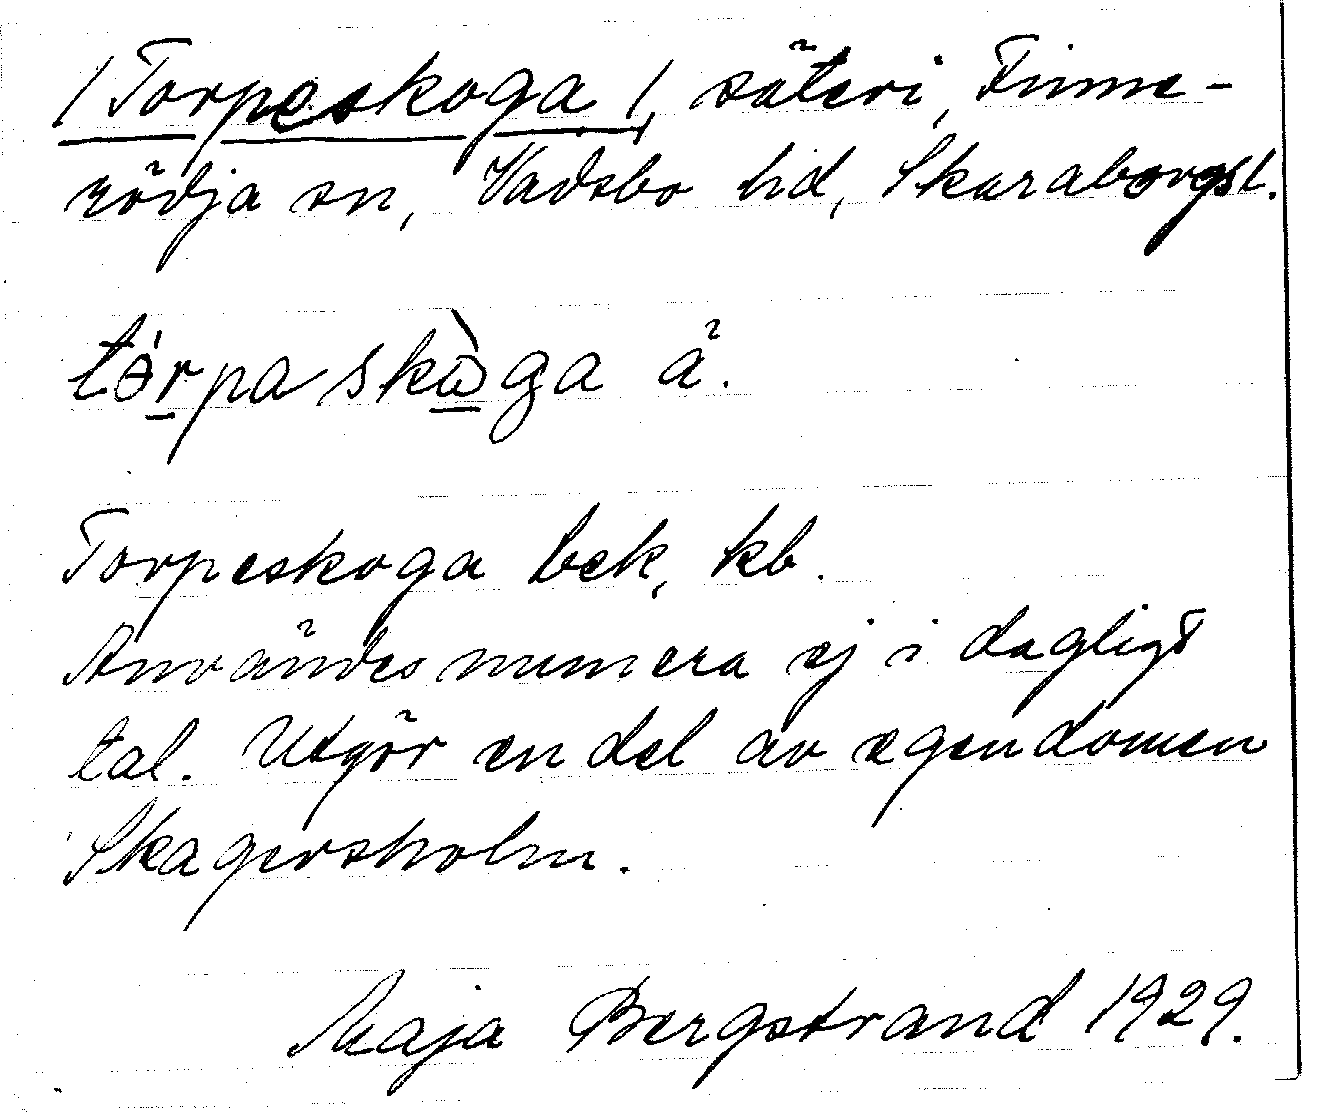 /Torpeskoga/, säteri, Finne-
rödja sn, Vadsbo hd, Skaraborgsl.
tórpaskὼga å.
Torpeskoga bek, kb.
Användes numera ej i dagligt
tal. Utgör en del av egendomen
Skagersholm.
Maja Bergstrand 1929.